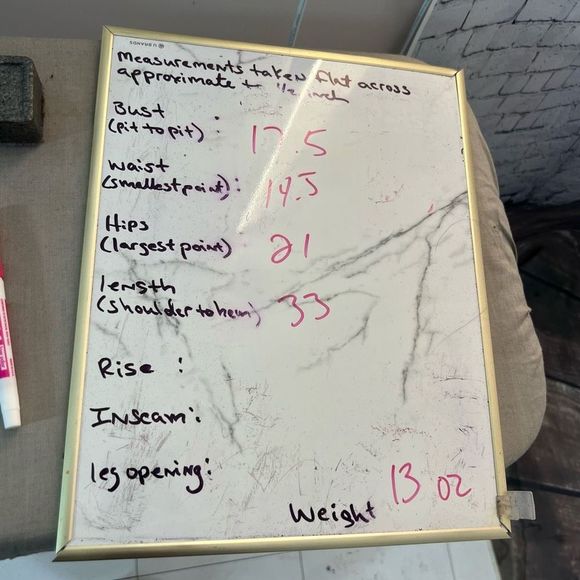 U BRANDS
Measurements taken flat across
approximate + 1/2 inch
Bust
(pit to pit) : 17.5
waist
(smallest point) : 14.5
Hips
(largest point) 21
length
(shoulder to hem) 33
Rise :
Inseam :
leg opening :
13 oz
Weight